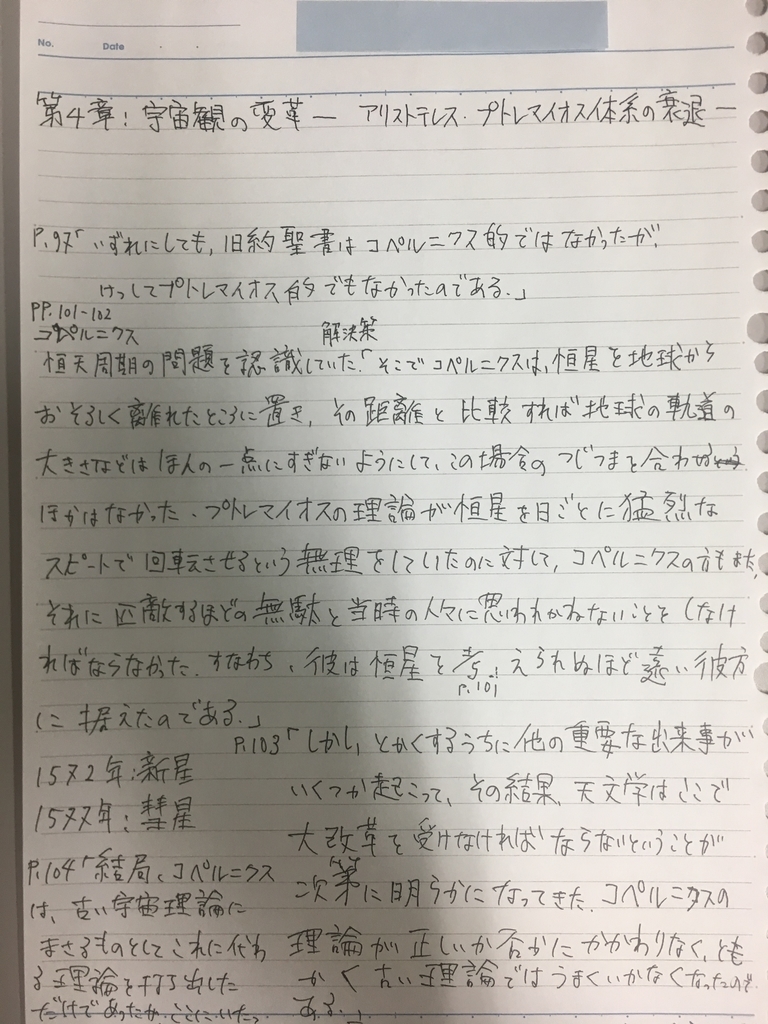 No.
Date
第4章:宇宙観の変革 — アリストテレス・プトレマイオス体系の衰退 —
P.97「いずれにしても,旧約聖書はコペルニクス的ではなかったが,
けっしてプトレマイオス的でもなかったのである.」
PP.101-102
コペルニクス
解決策
恒天周期の問題を認識していた.「そこでコペルニクスは,恒星を地球から
おそろしく離れたところに置き,その距離と比較すれば地球の軌道の
大きさなどはほんの一点にすぎないようにして,この場合のつじつまを合わせる
ほかはなかった.プトレマイオスの理論が恒星を日ごとに猛烈な
スピードで回転させるという無理をしていたのに対して,コペルニクスの方もまた,
それに匹敵するほどの無駄と当時の人々に思われかねないことをしなけ
ればならなかった.すなわち,彼は恒星を考えられぬほど遠い彼方
P.101
に据えたのである.」
P.103「しかし,とかくするうちに他の重要な出来事が
いくつか起こって,その結果,天文学はここで
大改革を受けなければならないということが
次第に明らかになってきた.コペルニクスの
理論が正しいか否かにかかわりなく,とも
かく古い理論ではうまくいかなくなったので
ある.」
1572年:新星
1577年:彗星
P.104「結局,コペルニクス
は,古い宇宙理論に
まさるものとしてこれに代わ
る理論を打ち出した
だけであったが,ここにいたっ